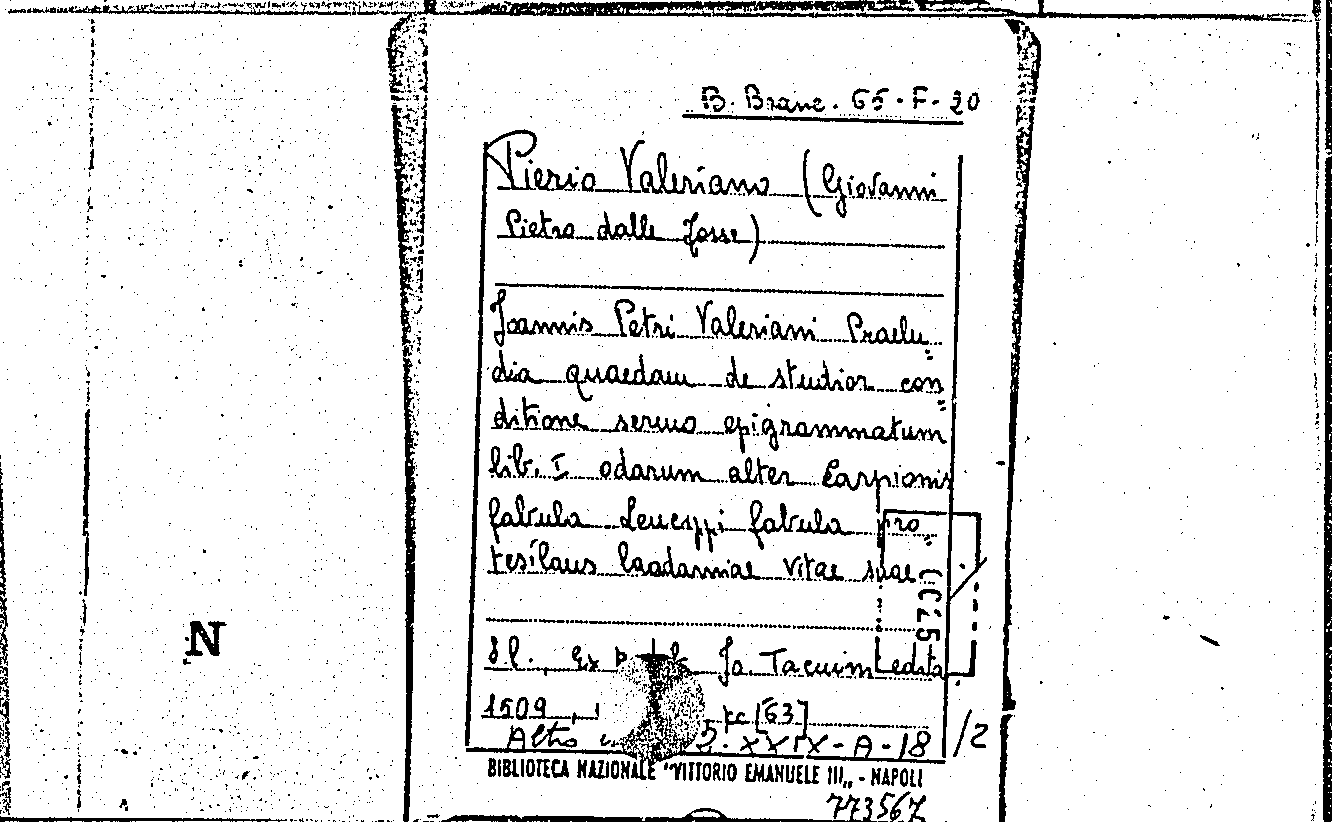 B. Branc. 65-F-20
Pierio Valeriano (Giovanni
Pietro dalle Fosse)
Joannis Petri Valeriani Praelu=
dia quaedam de studior con=
ditione sermo epigrammatum
lib. I odarum alter Carpionis
fabula Leucippi fabula pro=
tesilaus laodamiae vitae suae
S.l., ex Jo. Tacuini edita
1509, pc [63]
Altro XXIX-A-18 /2
BIBLIOTECA NAZIONALE "VITTORIO EMANUELE III„ - NAPOLI
773567
N